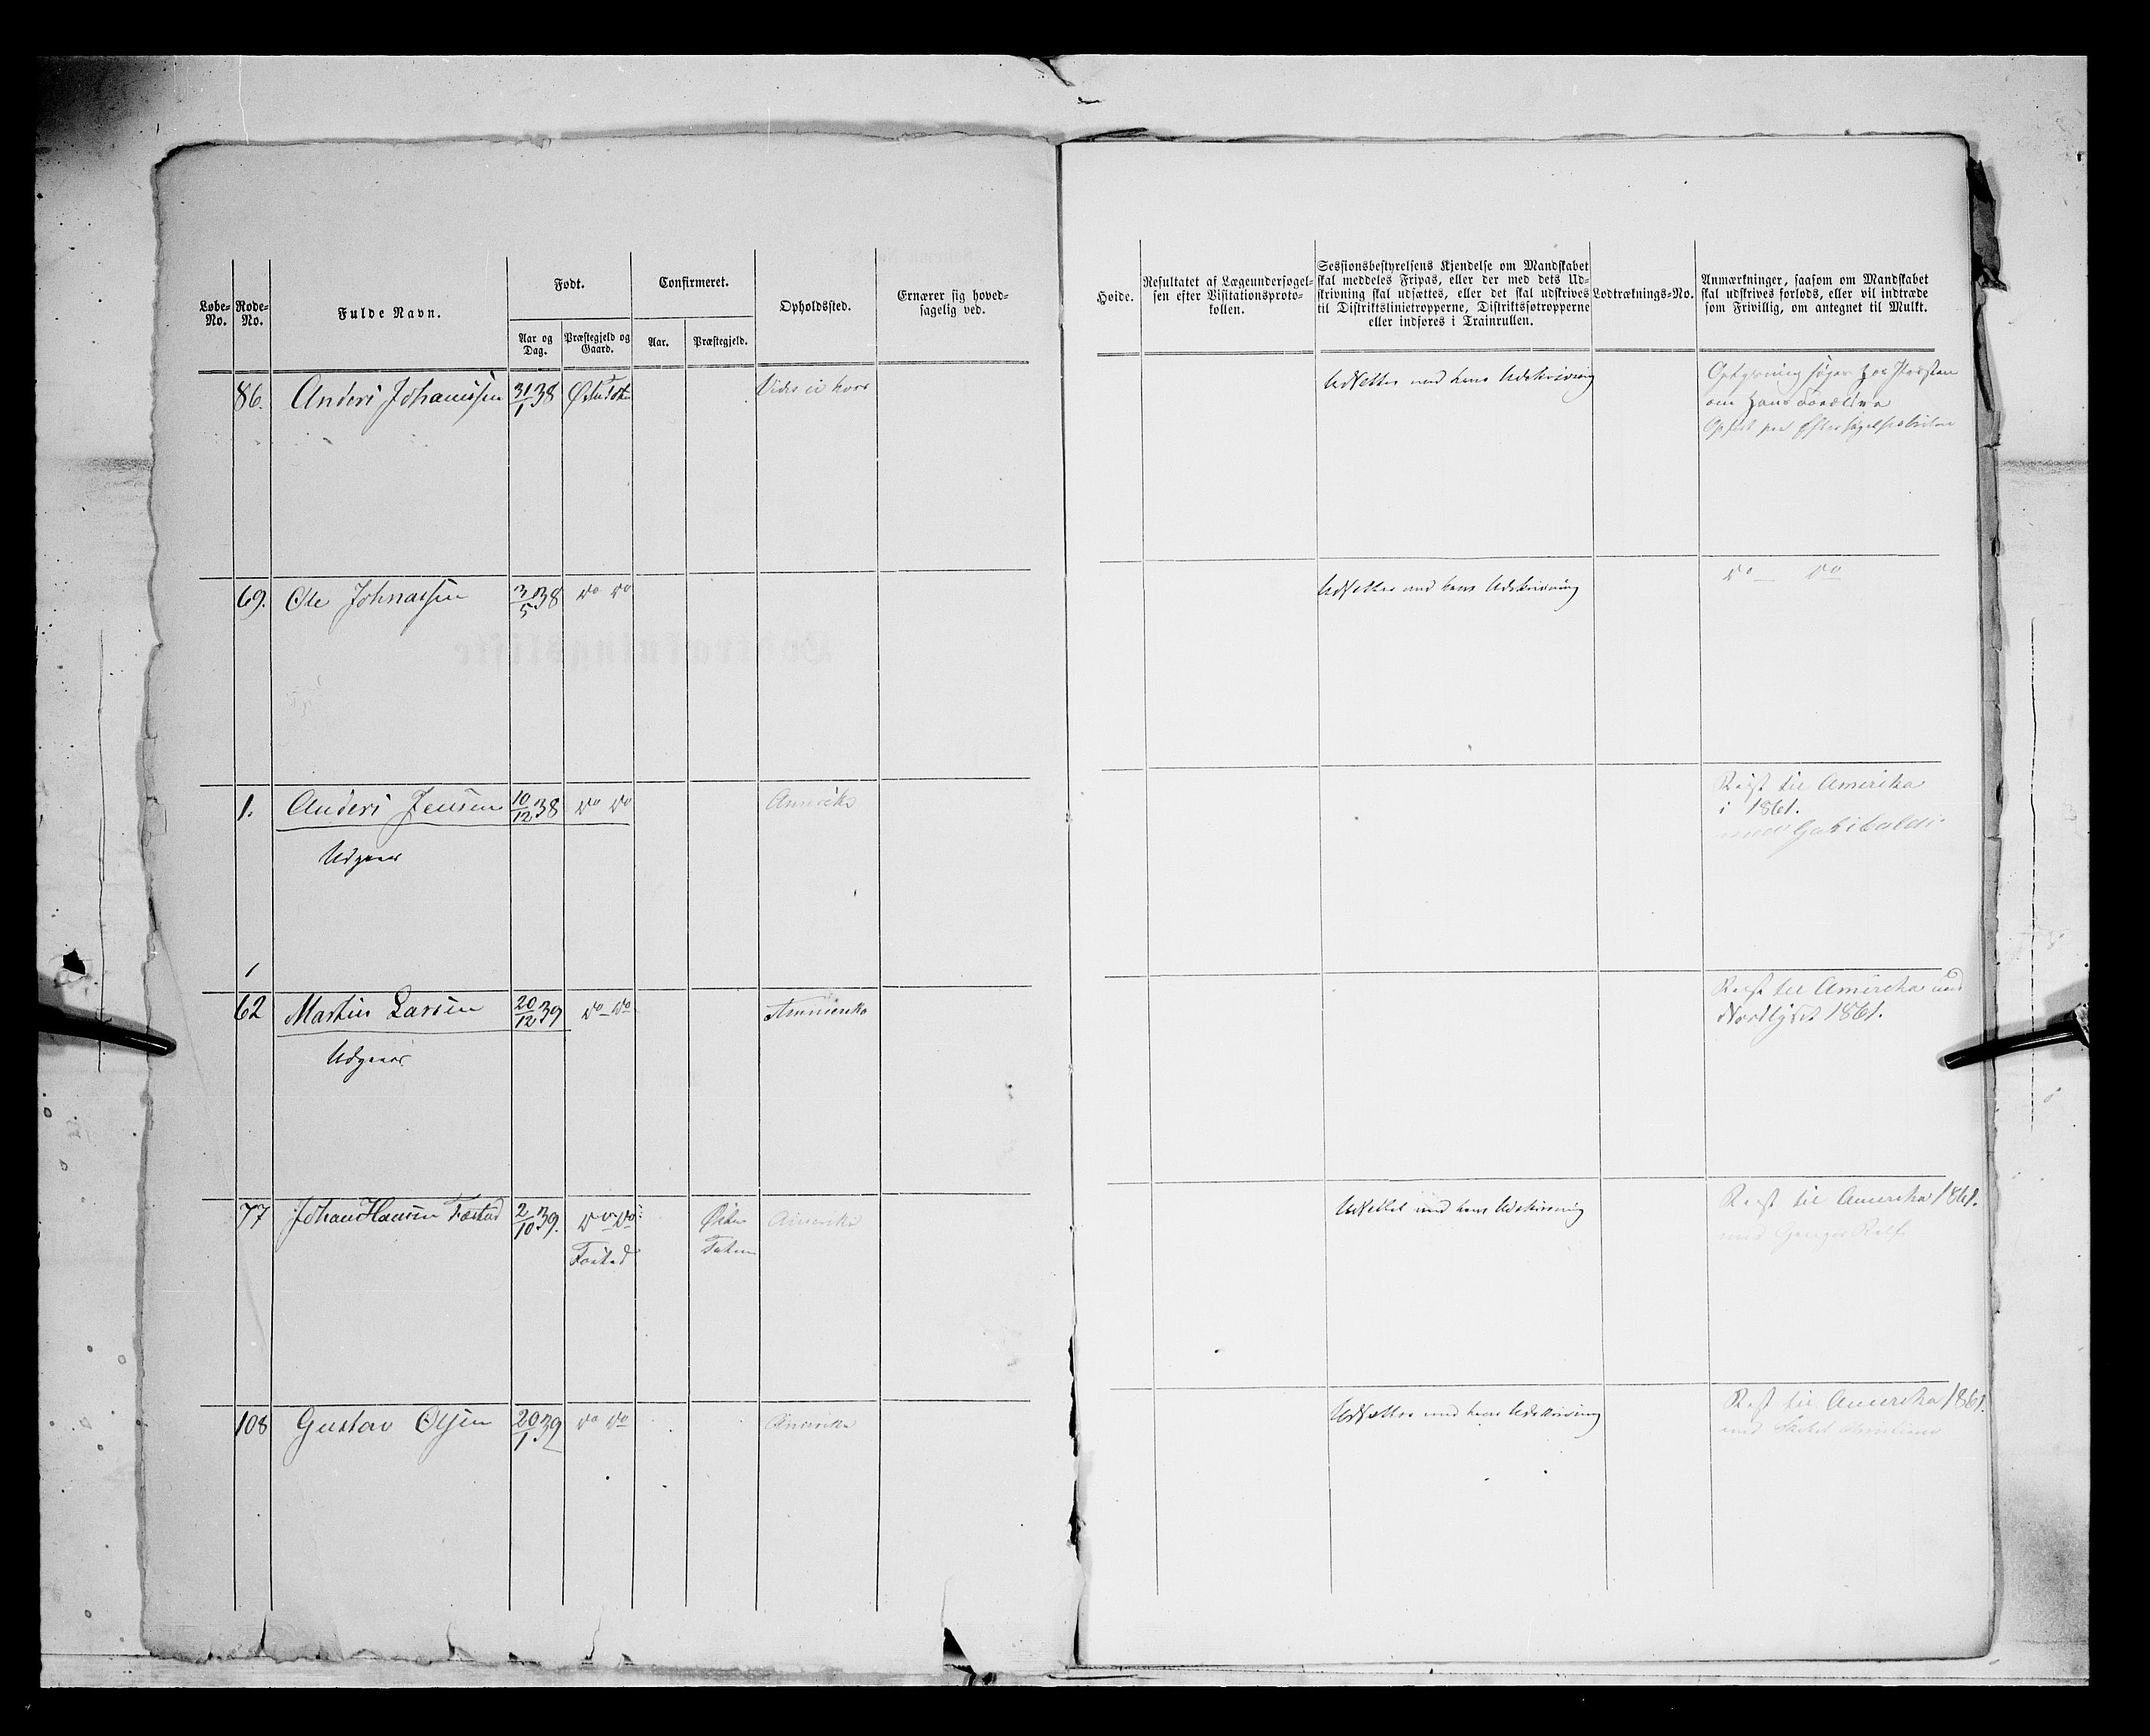 Løbe-No.
Rode-No.
Fulde Navn.
Født.
Aar og Dag.
Præstegjeld og Gaard.
Confirmeret.
Aar.
Præstegjeld.
Opholdssted.
Ernærer sig hoved-
sagelig ved.
Høide.
Resultatet af Lægeundersøgel-
sen efter Visitationsproto-
kollen.
Sessionsbestyrelsens Kjendelse om Mandskabet
skal meddeles Fripas, eller der med dets Ud-
skrivning skal udsættes, eller det skal udskrives
til Distriktslinietropperne, Distriktssøtropperne
eller indføres i Trainrullen.
Lodtræknings-No.
Anmærkninger, saasom om Mandskabet
skal udskrives forlods, eller vil indtræde
som Frivillig, om antegnet til Mulkt.
86. Anders Johannssen 31/1 38 Østre Toten Vides ei hvor Udsættes med hans Udskrivning
Oplysning søges hos Præsten
om hans
69. Ole Johnassen 3/5 38 do do Udsættes med hans Udskrivning do do
1. Anders Jensen 10/12 38 do do Amerika Reist til Amerika
i 1861.
med Garibaldi
Udgaar
62 Martin Larsen 20/12 39 do do Ammerika Reist til Amerika med
Nordlyset 1861.
Udgaar
77 Johan Hansen Fæstad 2/10 39. do do Østre Amerika Udsættes med hans Udskrivning Reist til Amerika 1861.
Toten
med Ganger Rolf
108 Gustav Olsen 20/1 39 do do Amerika Udsættes med hans Udskrivning Reist til Amerika 1861.
med